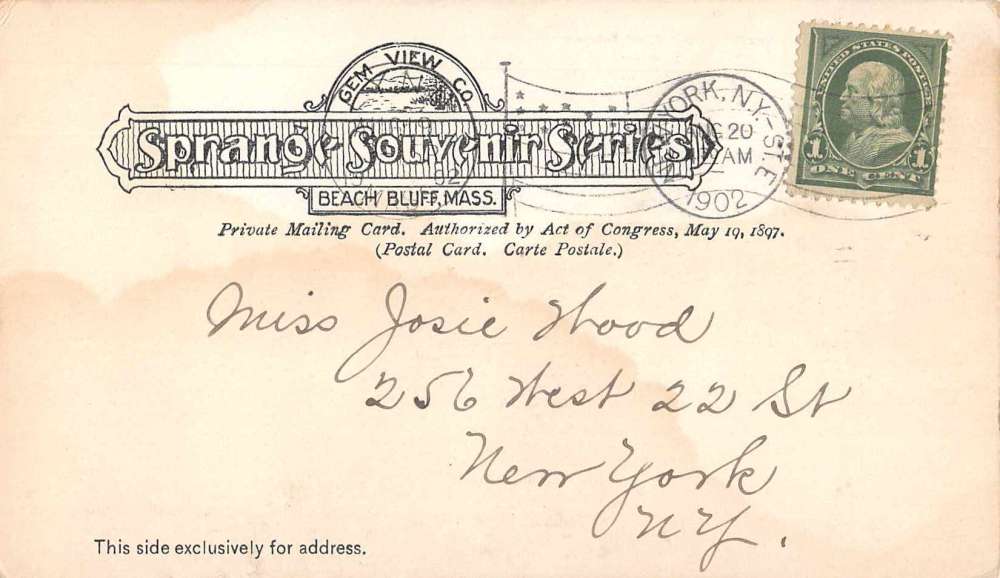 GEM VIEW CO.
Sprange Souvenir Series
BEACH BLUFF, MASS.
Private Mailing Card. Authorized by Act of Congress, May 19, 1897.
(Postal Card. Carte Postale.)
YORK, N.Y. STA. E
20
AM
1902
UNITED STATES POSTAGE
1 1
ONE CENT
Miss Josie Wood
256 West 22 St
New York
N.Y.
This side exclusively for address.